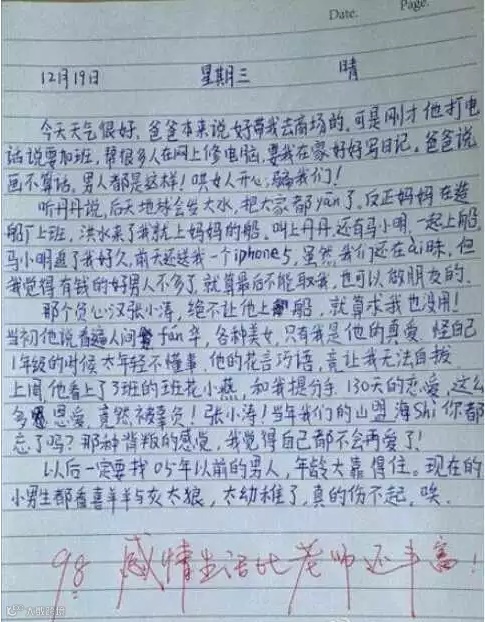 Date.
Page.
12月19日 星期三 晴
今天天气很好,爸爸本来说好带我去商场的,可是刚才他打电
话说要加班,帮很多人在网上修电脑,要我在家好好写日记。爸爸说
画不算话。男人都是这样!哄女人开心,骗我们!
听丹丹说,后天地球会发大水,把大家都yān了。反正妈妈在造
船厂上班,洪水来了我就上妈妈的船,叫上丹丹,还有马小明,一起上船。
马小明追了我好久,前天还送我一个iphone5,虽然我们还在ài昧,但
我觉得有钱的好男人不多了,就算最后不能取我,也可以做朋友的。
那个负心汉张小涛,绝不让他上船,就算求我也没用!
当初他说看遍人间fán华,各种美女,只有我是他的真爱,怪自己
1年级的时候太年轻不懂事,他的花言巧语,竟让我无法自拔
上周,他看上了3班的班花小燕,和我提分手,130天的恋爱,这么
多恩爱,竟然被辜负!张小涛!当年我们的山盟海Shi你都
忘了吗?那种背叛的感觉,我觉得自己都不会再爱了!
以后一定要找05年以前的男人,年龄大靠得住。现在的
小男生都看喜羊羊与灰太狼,太幼稚了,真的伤不起,唉。
98 感情生活比老师还丰富!